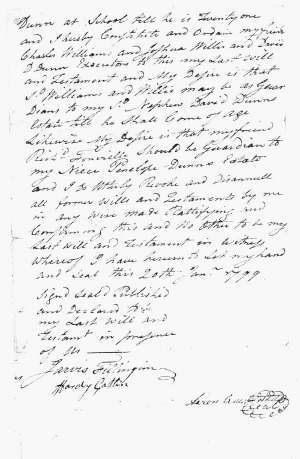 Dunn at School till he is Twenty one
and I hereby Constitute and Ordain my friends
Charles Williams and Joshua Willis and David
D Dunn Executors to this my Last Will
and Testament and My Desire is that
Sd Williams and Willis may be as Guar
Dians to my Sd Nephew David Dunns
Estate till he Shall Come of Age
Likewise My Desire is that my friend
Richd Should be Guardian to
my Niece Penelope Dunns Estate
and I do Utterly Revoke and Disannull
all former Wills and Testaments by me
in any Wise Made Rattifying and
Confirming this and No Other to be my
Last Will and Testament in Witness
Whereof I have hereunto Set my hand
and Seal this 20th Jany 1799
Signd Seald Published
and Declared to be
my Last Will and
Testament in presence
of Us
Jarvis Fillingin
Hardy Gatlin